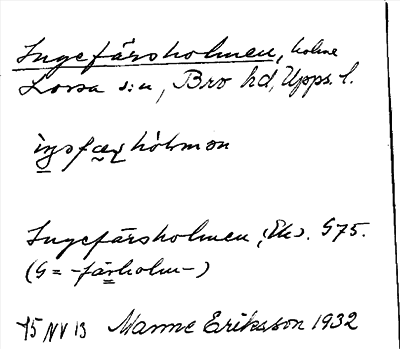 Ingefärsholmen, holme
Lossa s:n, Bro hd, Upps. l.
ìŋsfæʂhòlmən
Ingefärsholmen, Ek. G75.
(G = -färholm-)
15 NV 13 Manne Eriksson 1932